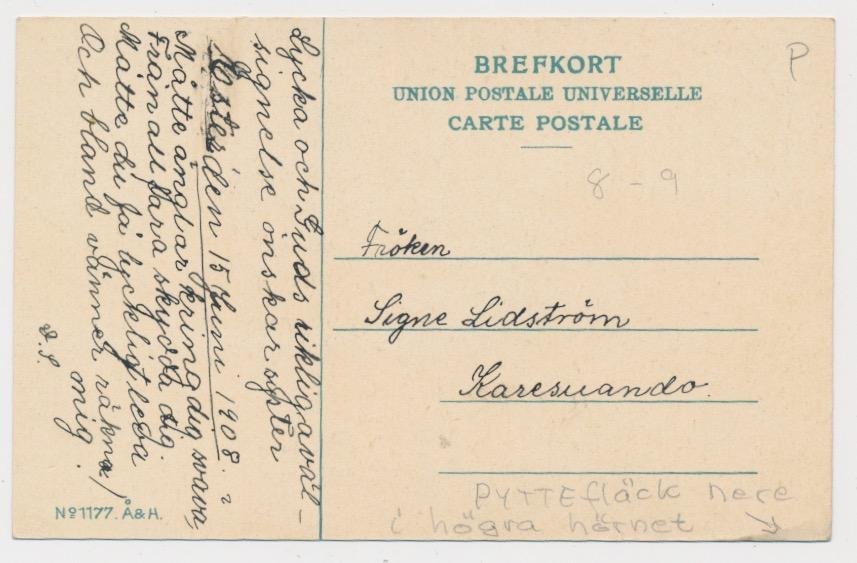 BREFKORT
UNION POSTALE UNIVERSELLE
CARTE POSTALE
P
8 - 9
Fröken
Signe Lidström
Karesuando.
PYTTEfläck nere
i högra hörnet
Lycka och Guds rikliga väl-
signelse önskar syster
den 15 Juni 1908.
Måtte änglar kring dig sväva,
Från all fara skydda dig
Måtte du få lyckligt leva
Och bland vänner räkna
mig.
D.S.
No 1177. Å&H.